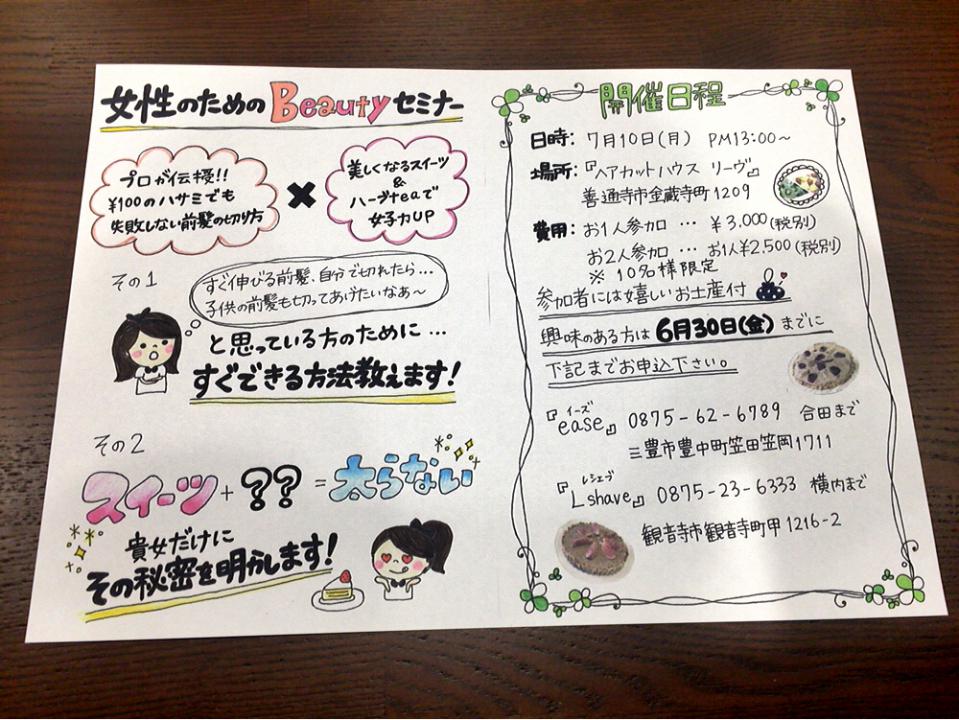 女性のための Beauty セミナー
プロが伝授!!
¥100のハサミでも
失敗しない前髪の切り方
×
美しくなるスイーツ
&
ハーブteaで
女子力UP
その1
すぐ伸びる前髪、自分で切れたら…
子供の前髪も切ってあげたいなあ〜
と思っている方のために…
すぐできる方法教えます!
その2
スイーツ + ?? = 太らない
貴女だけに
その秘密を明かします!
開催日程
日時: 7月10日(月) PM13:00〜
場所:『ヘアカットハウス リーヴ』
善通寺市金蔵寺町1209
費用: お1人参加 … ¥3,000(税別)
お2人参加 … お1人¥2,500(税別)
※ 10名様限定
参加者には嬉しいお土産付
興味のある方は 6月30日(金) までに
下記までお申込下さい。
イーズ
『ease』 0875-62-6789 合田まで
三豊市豊中町笠田笠岡1711
レシェーブ
『Lshave』 0875-23-6333 横内まで
観音寺市観音寺町甲1216-2